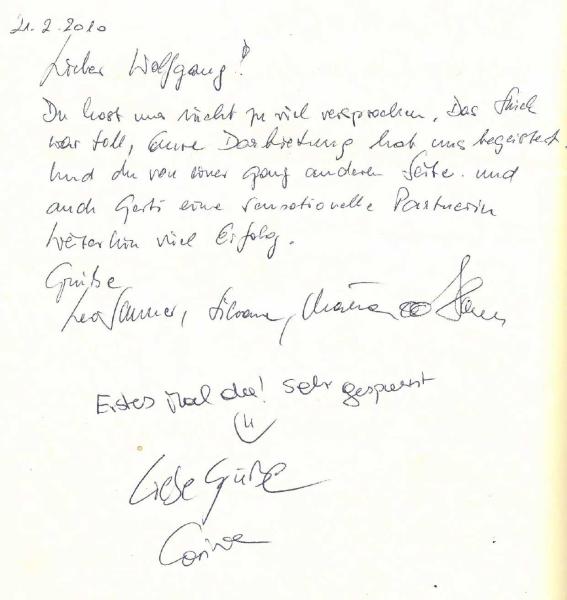 21.2.2010
Lieber Wolfgang!
Du hast uns nicht zu viel versprochen. Das Stück
war toll, Eure Darbietung hat uns begeistert.
Und du von einer ganz anderen Seite. und
auch Gerti eine sensationelle Partnerin
Weiterhin viel Erfolg.
Grüße
Erstes Mal da! Sehr gespannt
Liebe Grüße